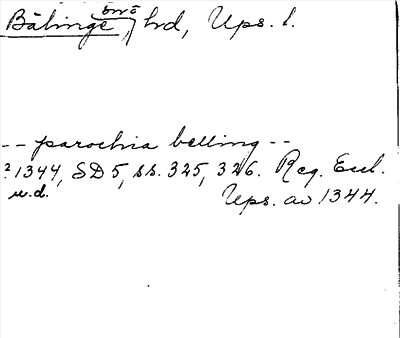 Bälinge, hrd, Ups. l.
-- parochia belling --
? 1344, SD 5, ss. 325, 326. Reg. Eccl.
u.d. Ups. av 1344.